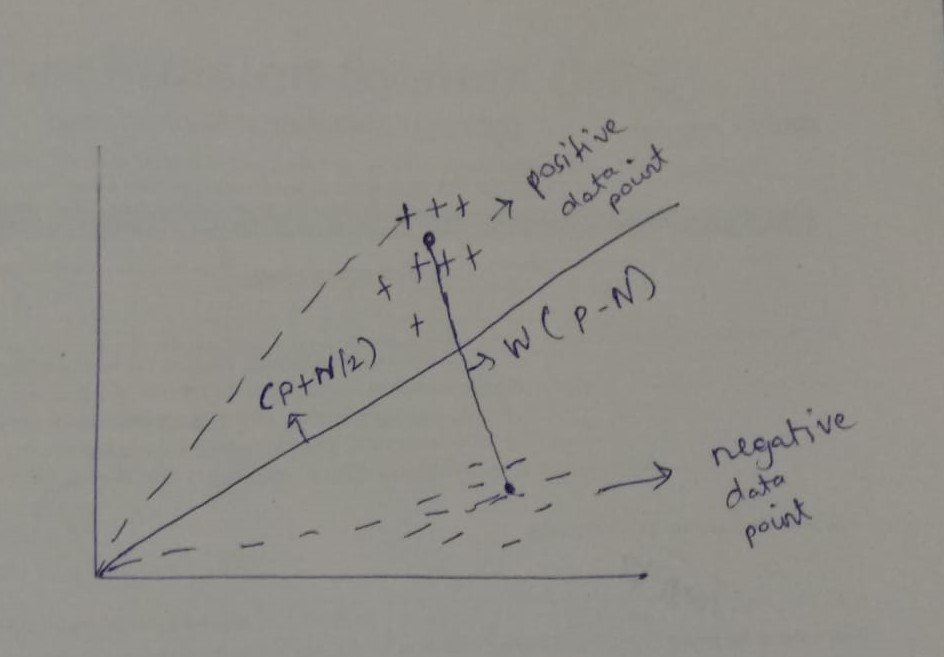 + + +
→ positive
data
point
+ + + + +
+
(P+N/2)
W(P-N)
negative
data
point